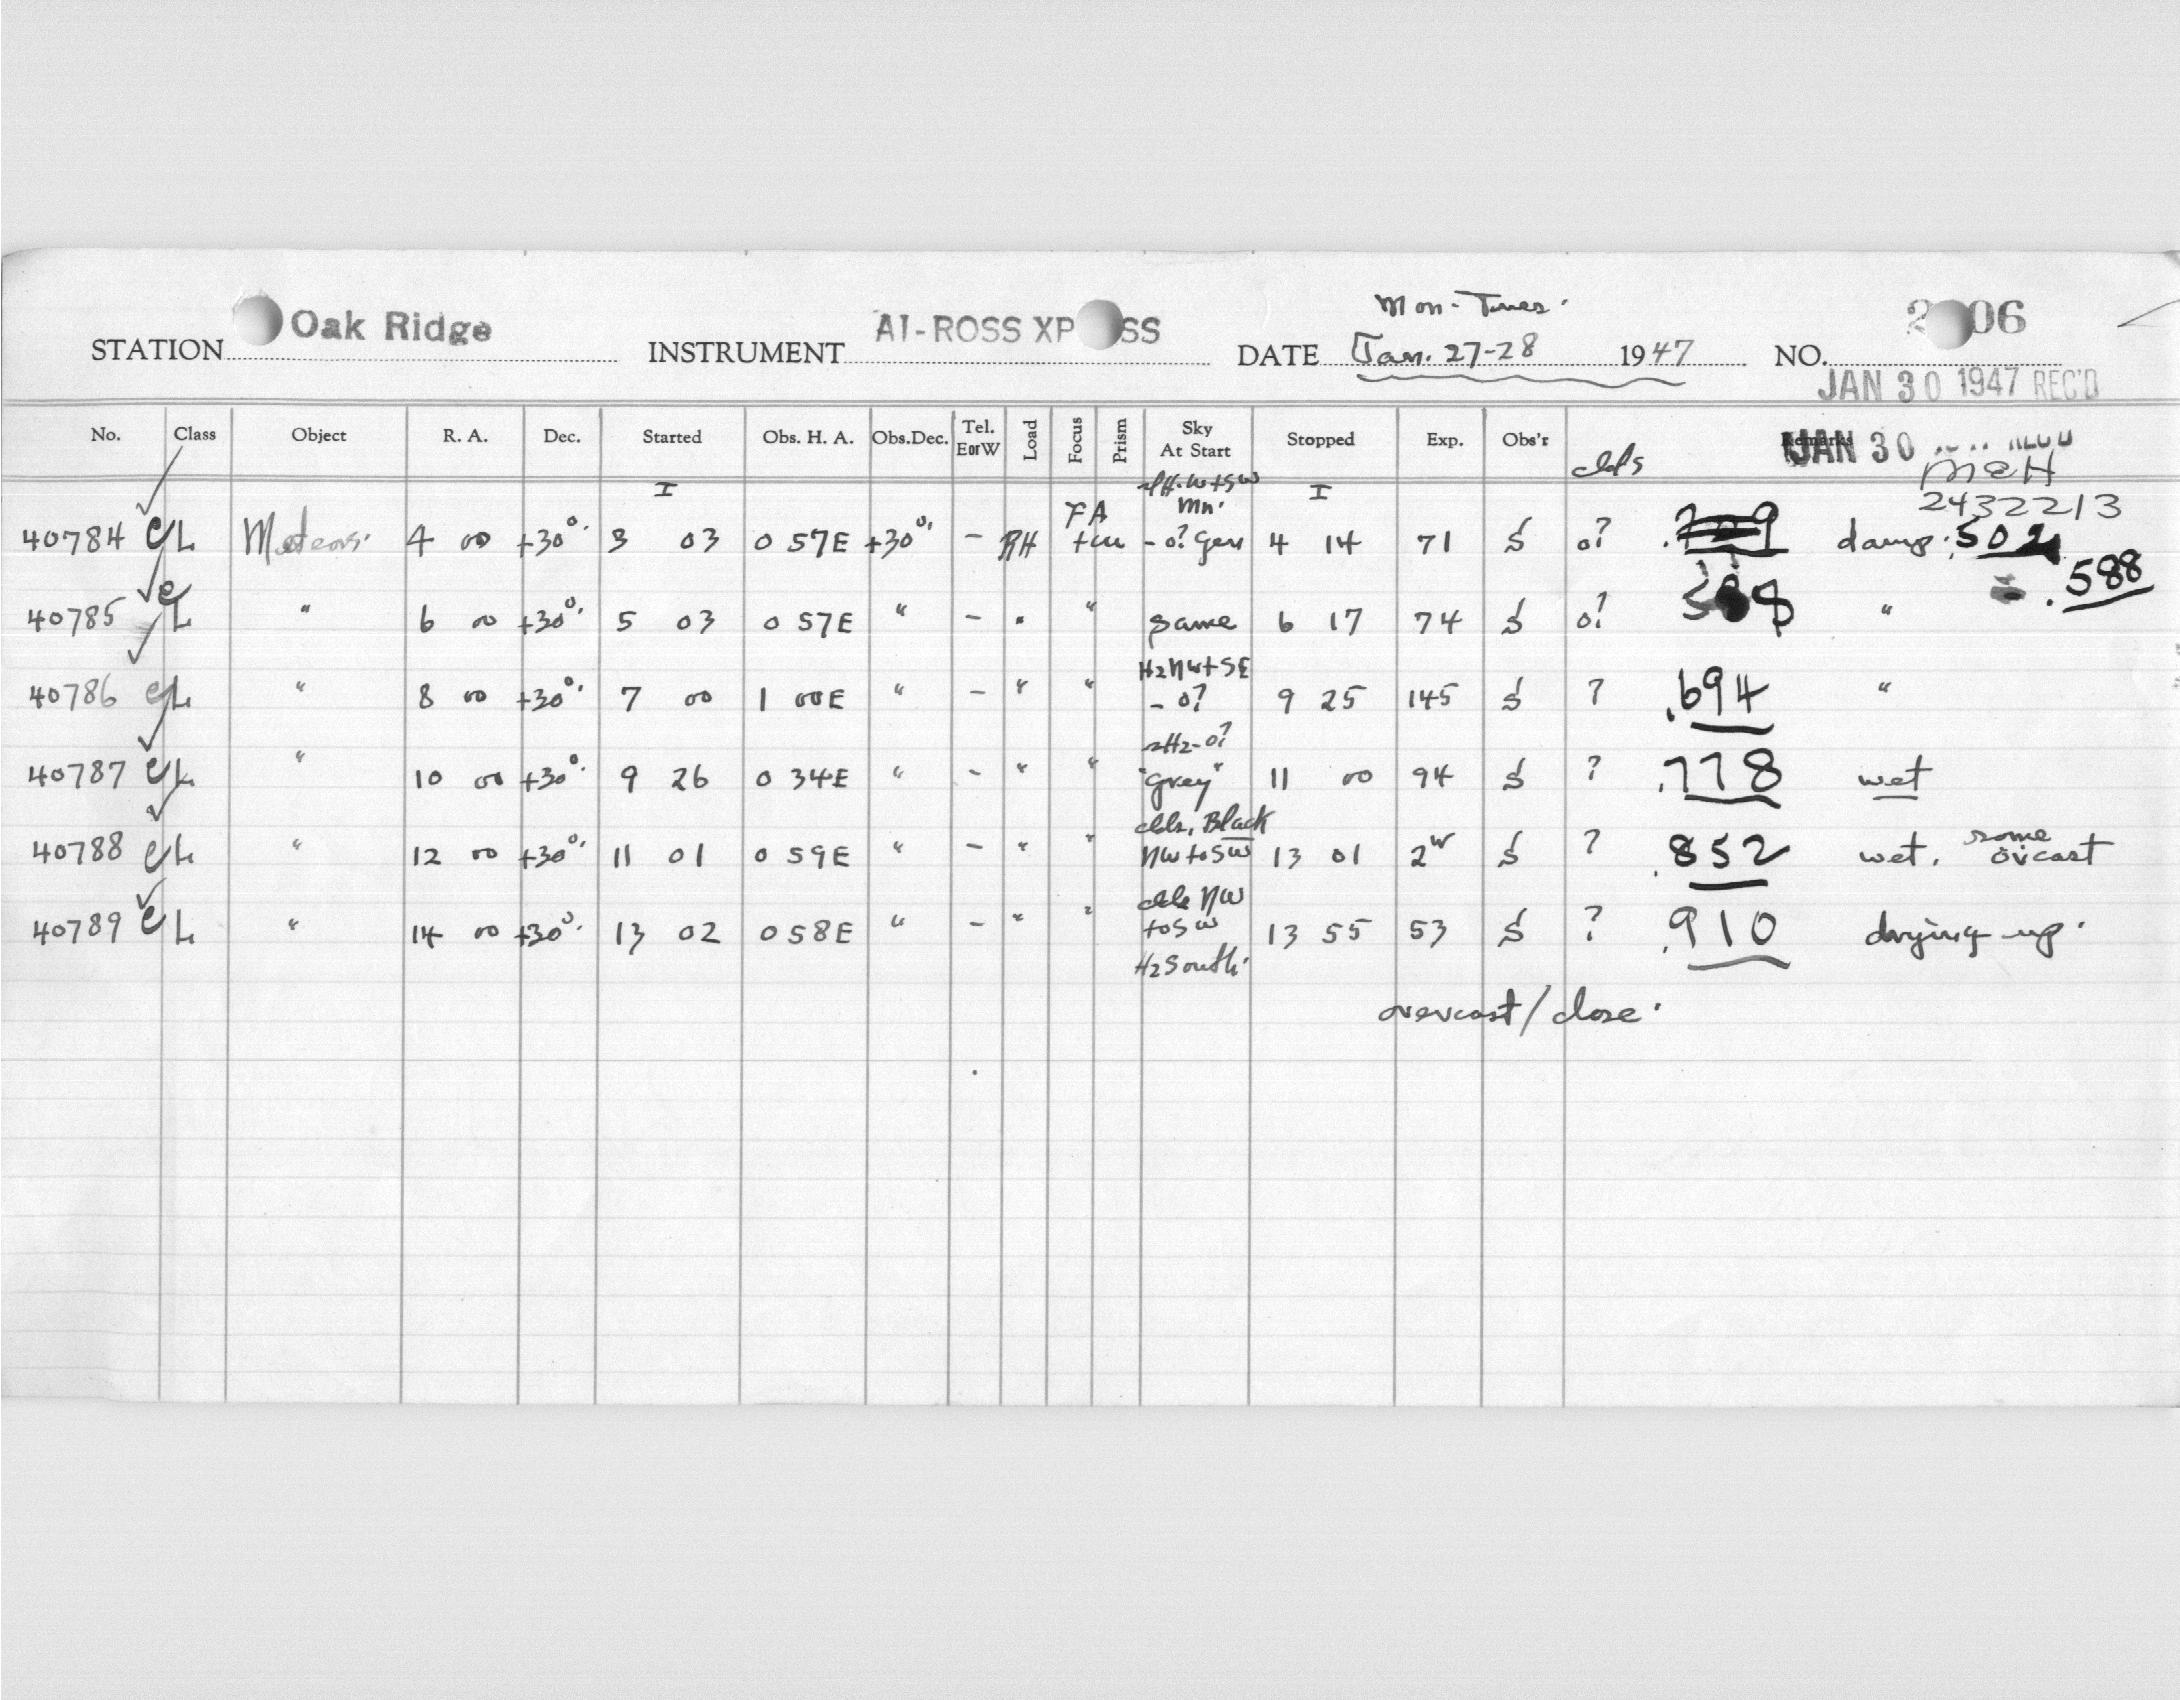 Mon-Tues.
STATION Oak Ridge INSTRUMENT AI-ROSS XP SS DATE Jan. 27-28 1947 NO. 2 06
JAN 30 1947 REC'D
No. Class Object R. A. Dec. Started Obs. H. A. Obs.Dec. Tel. EorW Load Focus Prism Sky At Start Stopped Exp. Obs'r clds Remarks
JAN 30 REC'D
MCH
2432213
I I
40784 C L Meteors. 4 00 +30°. 3 03 0 57E +30°. - RH FA - 0? Gen 4 14 71 S 0? damp. .502
40785 C L " 6 00 +30°. 5 03 0 57E " - " " same 6 17 74 S 0? " .588
40786 C L " 8 00 +30°. 7 00 1 00E " - " " H2 NW+SE - 0? 9 25 145 S ? .694 "
40787 C L " 10 00 +30°. 9 26 0 34E " - " " "Grey" 11 00 94 S ? .778 wet
40788 C L " 12 00 +30°. 11 01 0 59E " - " " clds, Black NW to SW 13 01 2 S ? .852 wet. some ovcast
40789 C L " 14 00 +30°. 13 02 0 58E " - " " clds NW to SW H2 South. 13 55 53 S ? .910 drying up.
overcast/close.